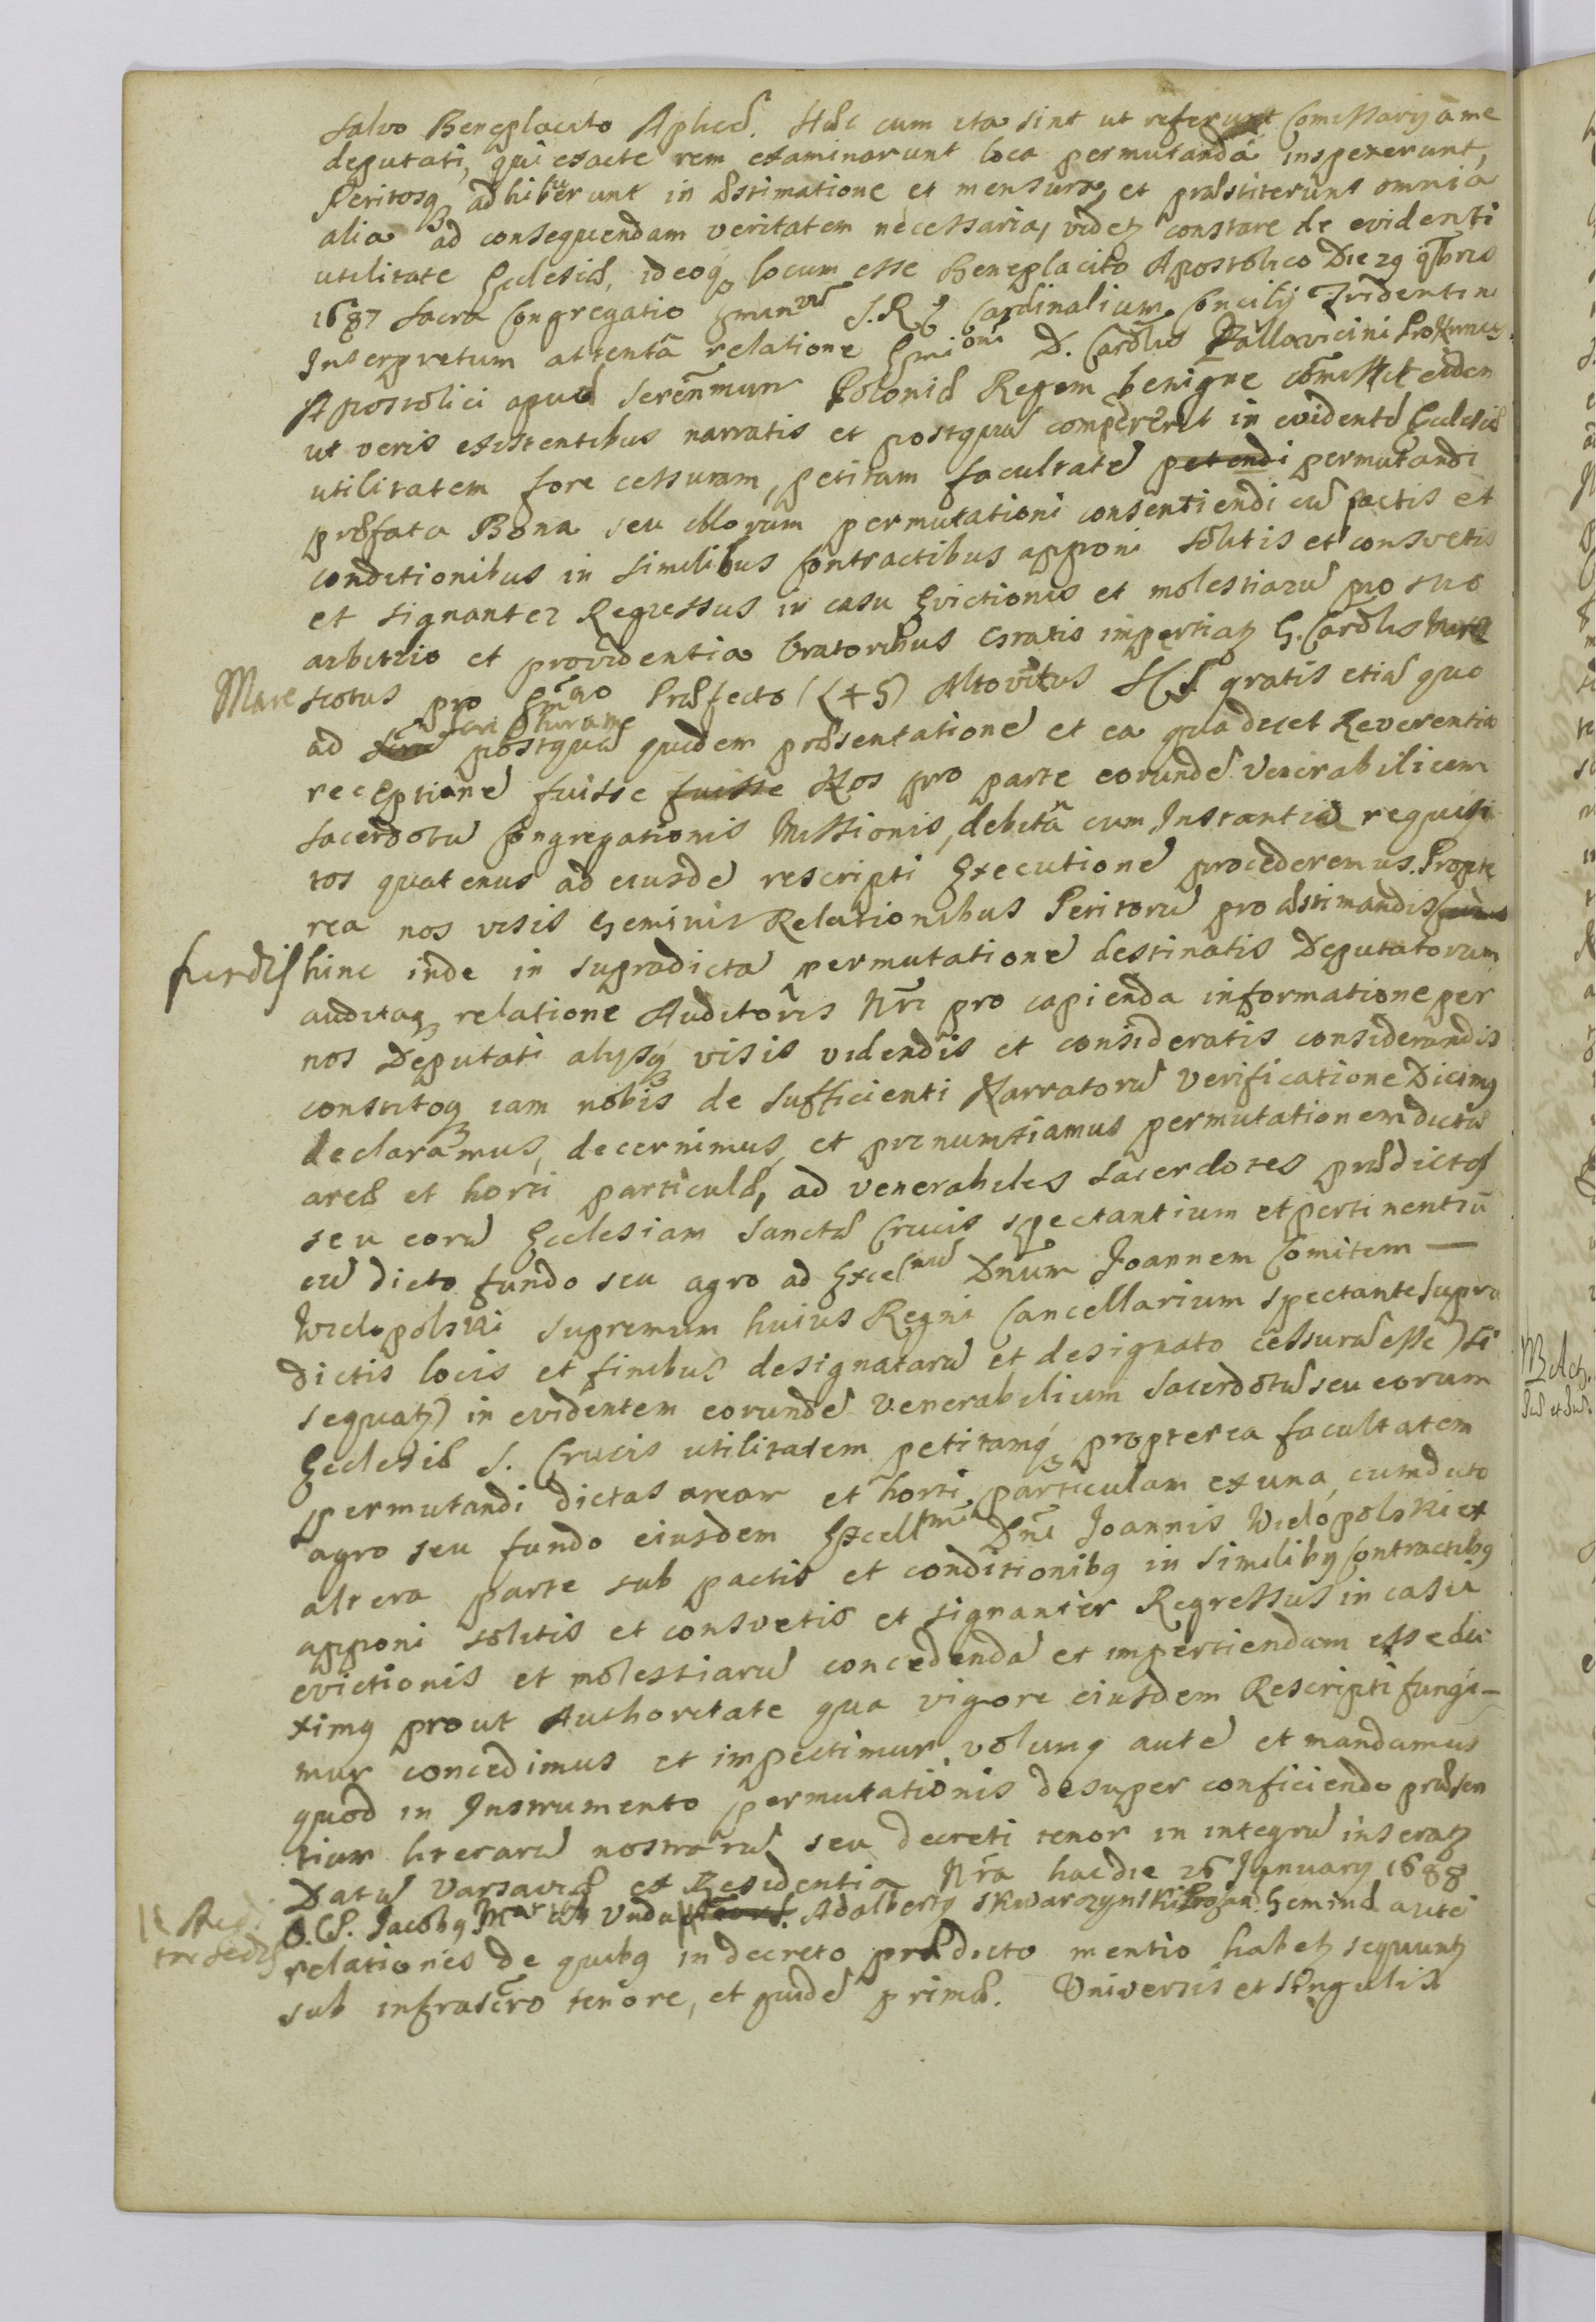 salvo Beneplacito Aplico. Hæc cum ita sint ut referunt Comissarij a me
deputati, qui exacte rem examinarunt loca permutanda inspexerunt,
Peritosq adhibuerunt in æstimatione et mensura, et præstiterunt omnia
alia ad consequendam veritatem necessaria, videtz constare de evidenti
utilitate Ecclesiæ, ideoq locum esse Beneplacito Apostolico Die 29
1687 Sacra Congregatio S.R.E Cardinalium Concilij Tridentini
Interpretum attentã relatione D. Carolus Pallavicini ProNuncij
Apostolici apud Serenmum Poloniæ Regem benigne cõmissit eidem
ut veris existentibus narratis et postquã compererit in evidentẽ Ecclesiæ
utilitatem fore cessuram, petitam facultatẽ petendi permutandi
præfata Bona seu illorum permutationi consentiendi cũ pactis et
conditionibus in similibus Contractibus apponi solitis et consvetis
et signanter Regressus in casu Evictionis et molestiarũ pro suo
arbitrio et providentia Oratoribus Gratis impertiatz G. Carolus Mare
Mare scotus pro Præfecto (L+S) Altovitus gratis etiã quo
ad scripturam
postquã quidem præsentationẽ et ea qua decet Reverentia
receptionẽ fuisse fuisse Nos pro parte eorundẽ Venerabilium
Sacerdotũ Congregationis Missionis, debitã cum Instantiã requisi
tos quatenus ad eiusdẽ rescripti Executionẽ procederemus. Propte
rea nos visis geminis Relationibus Peritorũ pro æstimandis
fundis hinc inde in supradicta permutationẽ destinatis Deputatorum
auditaq relatione Auditoris Nri pro capienda informatione per
nos Deputati alijsq visis videndis et consideratis considerandis
constitoq iam nobis de sufficienti Narratorũ verificatione Dicimq
declaramus, decernimus, et pronuntiamus permutationem dictæ
areæ et horti particulæ, ad venerabiles sacerdotes prædictos
seu eorũ Ecclesiam Sanctæ Crucis spectantium et pertinentiũ
cũ dicto fundo seu agro ad Excelmũ Dnum Joannem Comitem —
Wielopolski supremum huius Regni Cancellarium spectante supra
dictis locis et finibus designatarũ et designato cessurã esse (si
sequatz) in evidentem eorundẽ Venerabilium Sacerdotũ seu eorum
Ecclesiæ S. Crucis utilitatem petitamq propterea facultatem
permutandi dictas aream et horti particulam ex una, cum dicto
agro seu fundo eiusdem Excellmi Dni Joannis Wielopolski ex
altera parte sub pactis et conditionibq in similibq Contractibq
apponi solitis et consvetis et signanter Regressus in casu
evictionis et molestiarũ concedendã et impertiendam esse du
ximq prout Authoritate qua vigore eiusdem Rescripti fungi-
mur concedimus et impectimur volumq autẽ et mandamus
quod in Instrumento permutationis desuper conficiendo præsen
tium literarũ nostrarũ seu decreti tenor in integrũ inseratz
Datũ Varsaviæ ex Residentia Nra hac die 26 January 1688
Jacobq Adalbertq Skwarczynski Geminæ autẽ
relationes de quibq in decreto prædicto mentio habetz sequuntz
sub infrascro tenore, et quidẽ primæ. Universis et singulis